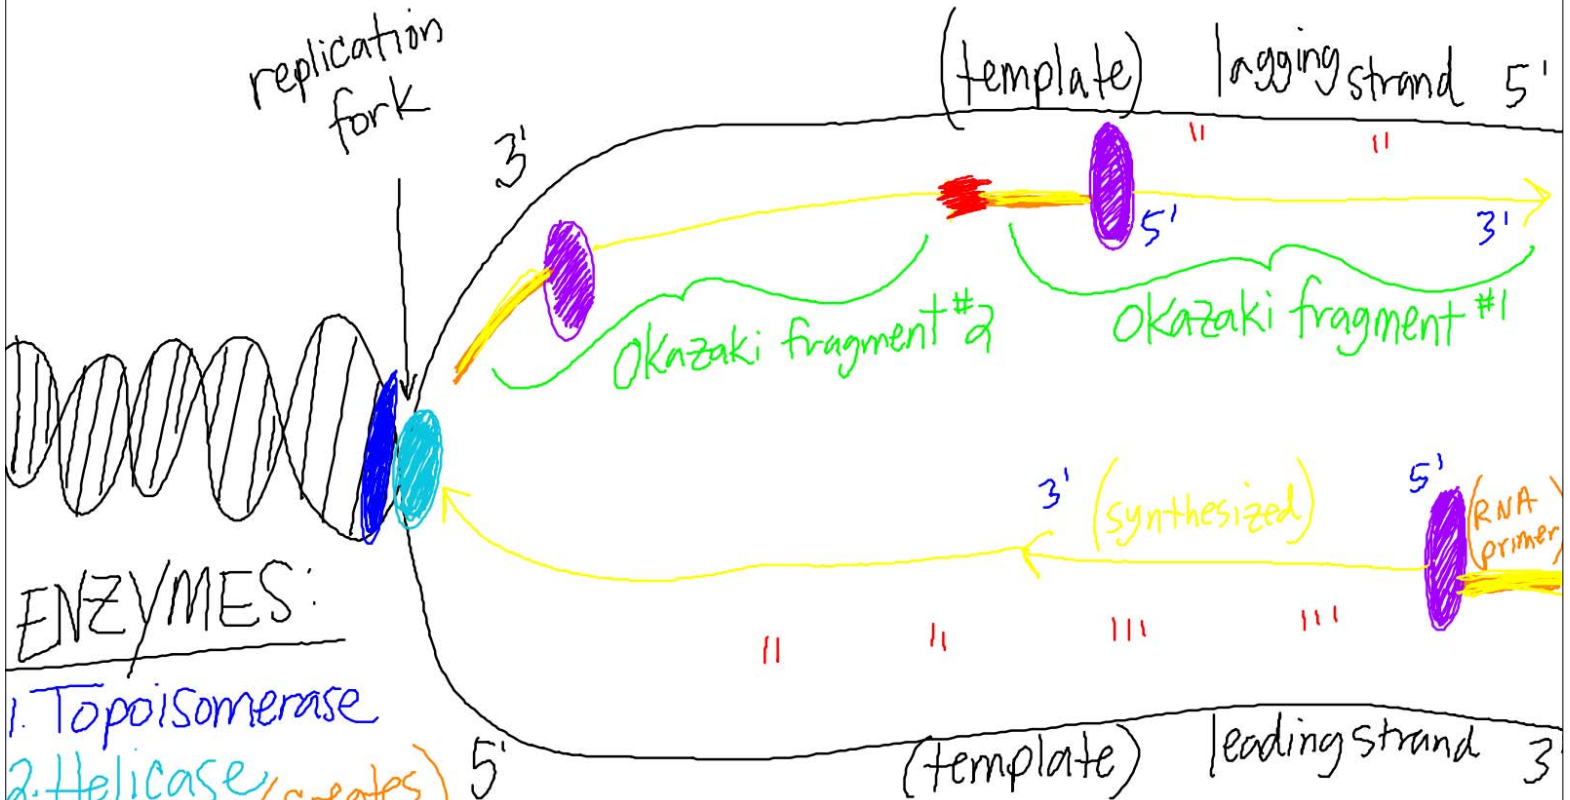 replication
fork
3'
(template) lagging strand 5'
5' 3'
Okazaki fragment #2
Okazaki fragment #1
3' (synthesized) 5' (RNA
primer)
ENZYMES:
1. Topoisomerase
2. Helicase (creates)
5' (template) leading strand 3'